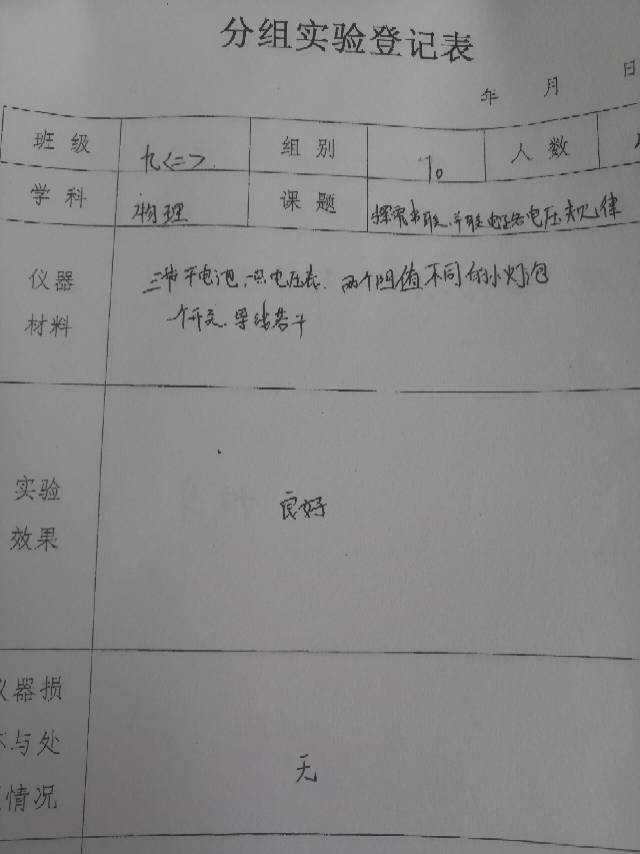 分组实验登记表
年 月 日
班级 九<二> 组别 10 人数
学科 物理 课题 探索串联、并联电路电压规律
仪器 三节干电池、一块电压表、两个阻值不同的小灯泡
材料 一个开关、导线若干
实验
效果 良好
仪器损
坏与处 无
情况